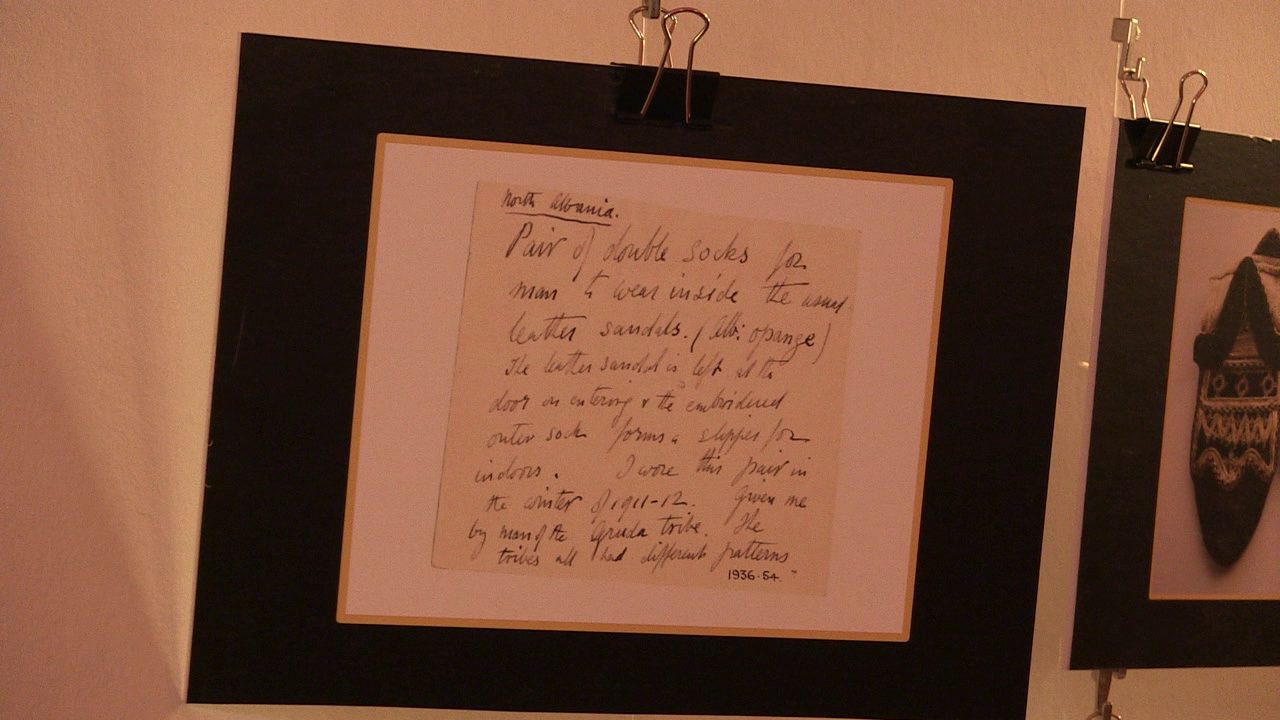 North Albania.
Pair of double socks for
man to wear inside the usual
leather sandals. (Alb: opange)
The leather sandal is left at the
door on entering & the embroidered
outer sock forms a slipper for
indoors. I wore this pair in
the winter of 1911-12. Given me
by man of the Gruda tribe. The
tribes all had different patterns
1936.54.